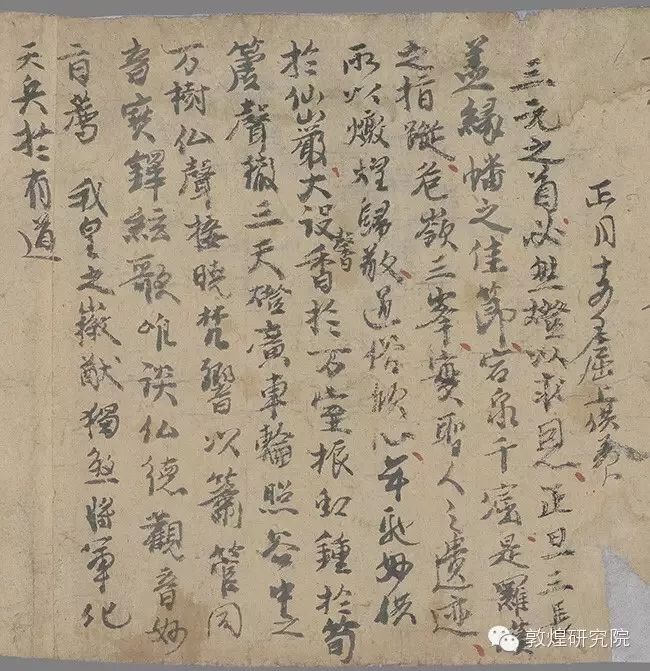 正月十五日窟上供養
三元之首必燃燈以求恩正旦三長
盖緣幡之佳節宕泉千窟是羅漢
之指蹤危嶺三峯實聖人之遺迹
所以燉煌歸敬道俗傾心年馳妙供
於仙巖大設馨香於万室振虹鍾於荀
簴聲徹三天燈廣車輪照谷中之
万樹仏聲接曉梵響以簫管同
音寳鐸絃歌唯談仏德觀音妙
音薦 我皇之徽猷獨煞將軍化
天兵於有道
敦煌研究院